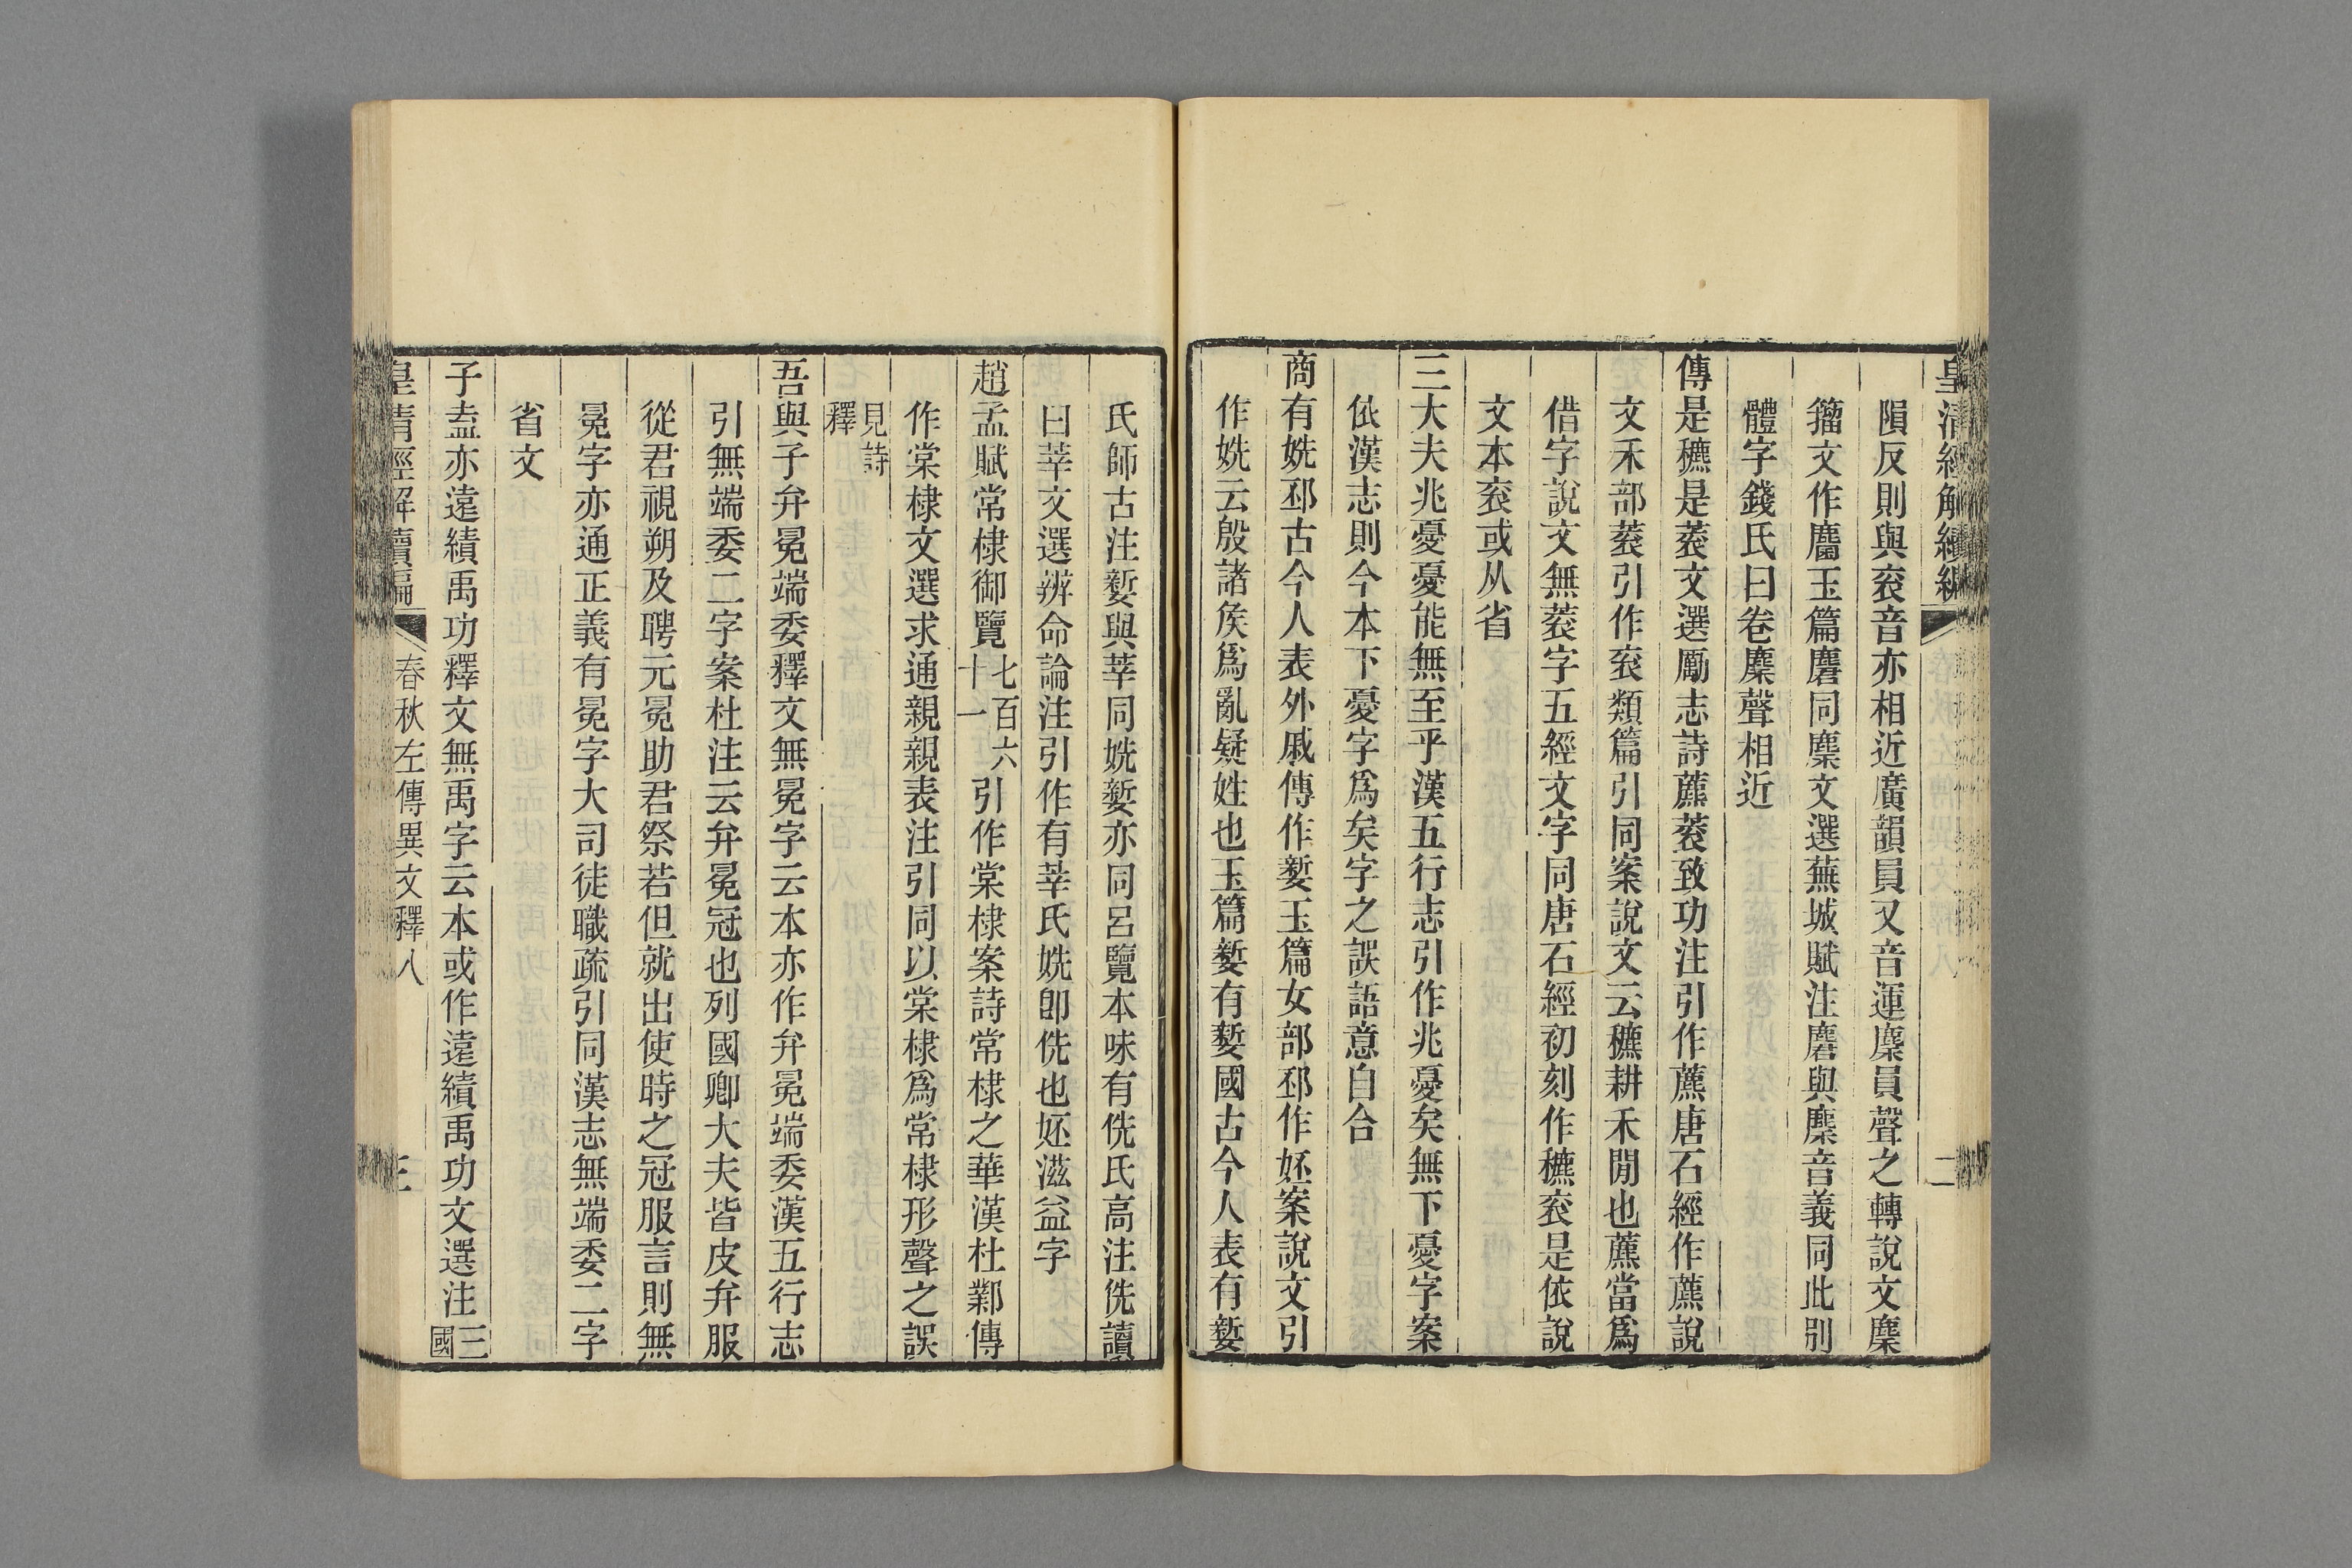 皇清經解續編
隕反則與衮音亦相近廣韻員又音運麇員聲之轉說文麇
籀文作麕玉篇麏同麇文選蕪城賦注麏與麇音義同此別
體字錢氏曰卷麇聲相近
傳是穮是蔉文選勵志詩藨蔉致功注引作藨唐石經作藨說
文禾部蔉引作衮類篇引同案說文云穮耕禾閒也藨當爲
借字說文無蔉字五經文字同唐石經初刻作穮衮是依說
文本衮或从省
三大夫兆憂憂能無至乎漢五行志引作兆憂矣無下憂字案
依漢志則今本下憂字爲矣字之誤語意自合
商有姺邳古今人表外戚傳作㜪玉篇女部邳作㚰案說文引
作姺云殷諸矦爲亂疑姓也玉篇㜪有㜪國古今人表有㜪
二
氏師古注㜪與莘同姺㜪亦同呂覽本味有侁氏高注侁讀
曰莘文選辨命論注引作有莘氏姺卽侁也㚰滋益字
趙孟賦常棣御覽七百六十一引作棠棣案詩常棣之華漢杜鄴傳
作棠棣文選求通親親表注引同以棠棣爲常棣形聲之誤
見詩釋
吾與子弁冕端委釋文無冕字云本亦作弁冕端委漢五行志
引無端委二字案杜注云弁冕冠也列國卿大夫皆皮弁服
從君視朔及聘元冕助君祭若但就出使時之冠服言則無
冕字亦通正義有冕字大司徒職疏引同漢志無端委二字
省文
子盍亦遠績禹功釋文無禹字云本或作遠績禹功文選注三國
皇清經解續編
春秋左傳異文釋八
三